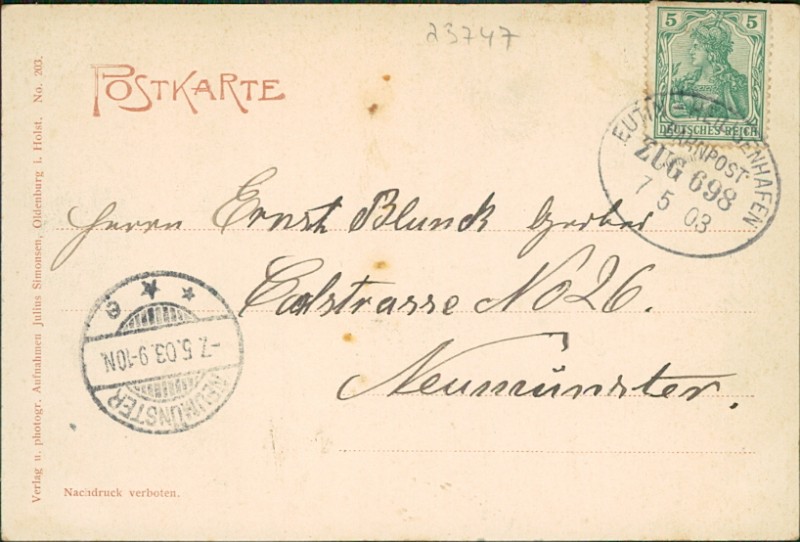 23747
POSTKARTE
5 5
DEUTSCHES REICH
EUTIN HEILIGENHAFEN
BAHNPOST
ZUG 698
7 5 03
Herrn Ernst Blunck Gerber
No 26.
Neumünster.
-7.5.03.9-10N.
NEUMÜNSTER
Nachdruck verboten.
Verlag u. photogr. Aufnahmen Julius Simonsen, Oldenburg i. Holst. No. 203.